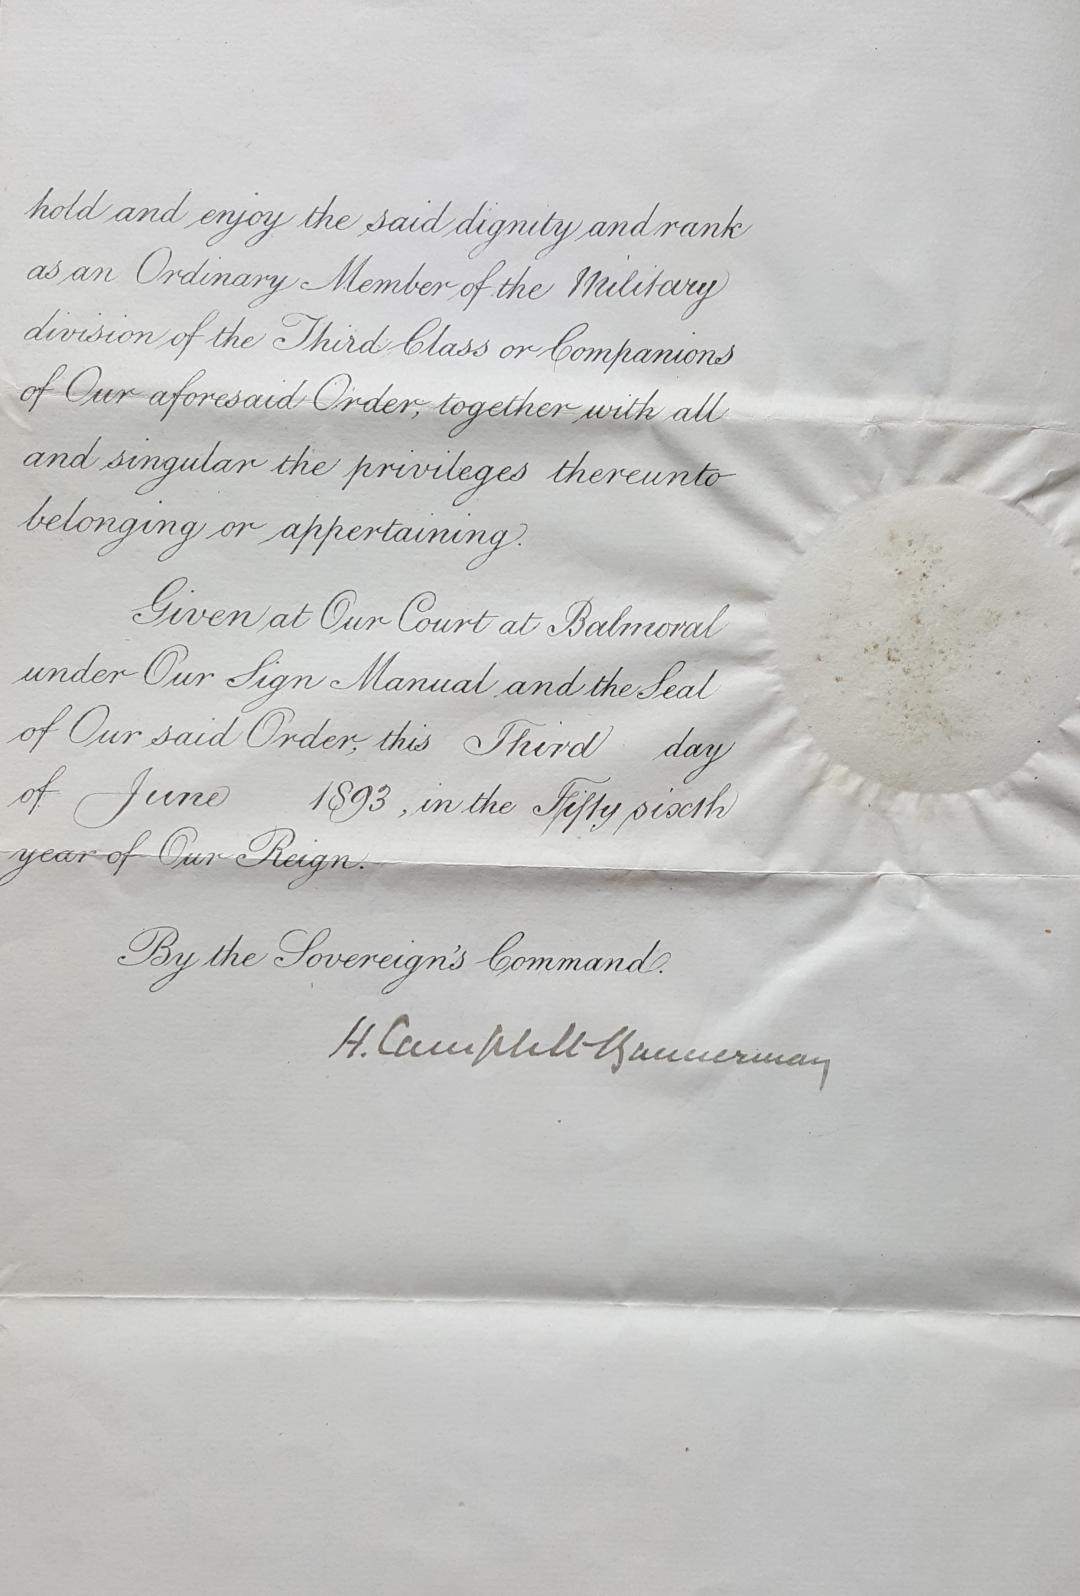 hold and enjoy the said dignity and rank
as an Ordinary Member of the Military
division of the Third Class or Companions
of Our aforesaid Order, together with all
and singular the privileges thereunto
belonging or appertaining.
Given at Our Court at Balmoral
under Our Sign Manual and the Seal
of Our said Order, this Third day
of June 1893, in the Fifty sixth
year of Our Reign.
By the Sovereign's Command.
H. Campbell-Bannerman